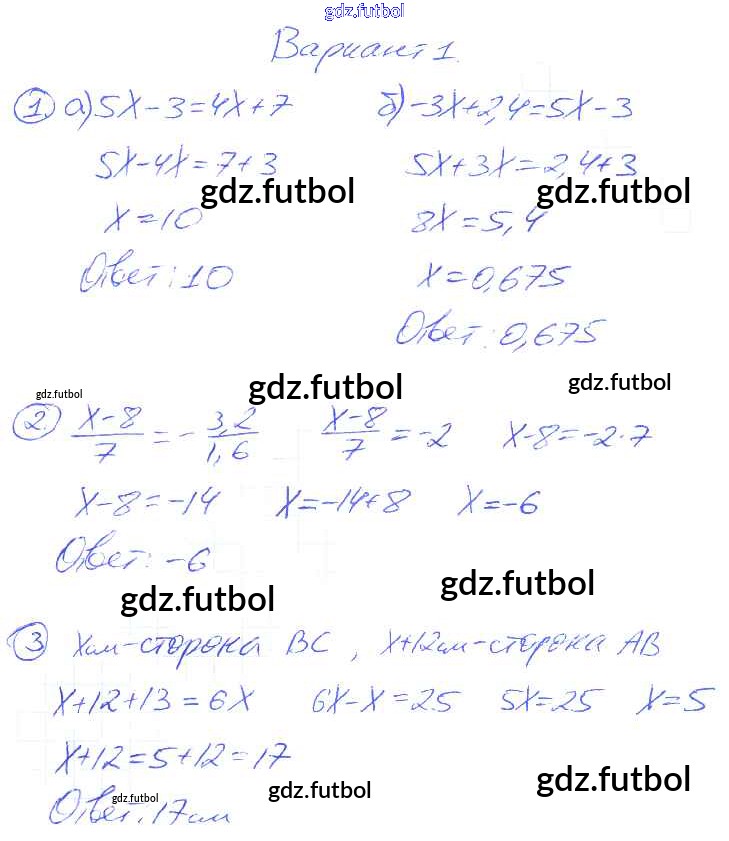 gdz.futbol
Вариант 1.
① а) 5x-3=4x+7 б) -3x+2,4=5x-3
5x-4x=7+3 5x+3x=2,4+3
gdz.futbol gdz.futbol
x=10 8x=5,4
Ответ: 10 x=0,675
Ответ: 0,675
gdz.futbol gdz.futbol gdz.futbol
② (x-8)/7 = -3,2/1,6 (x-8)/7 = -2 x-8=-2·7
x-8=-14 x=-14+8 x=-6
Ответ: -6
gdz.futbol gdz.futbol
③ xсм-сторона BC, x+12см-сторона AB
x+12+13=6x 6x-x=25 5x=25 x=5
x+12=5+12=17
gdz.futbol gdz.futbol gdz.futbol
Ответ: 17см